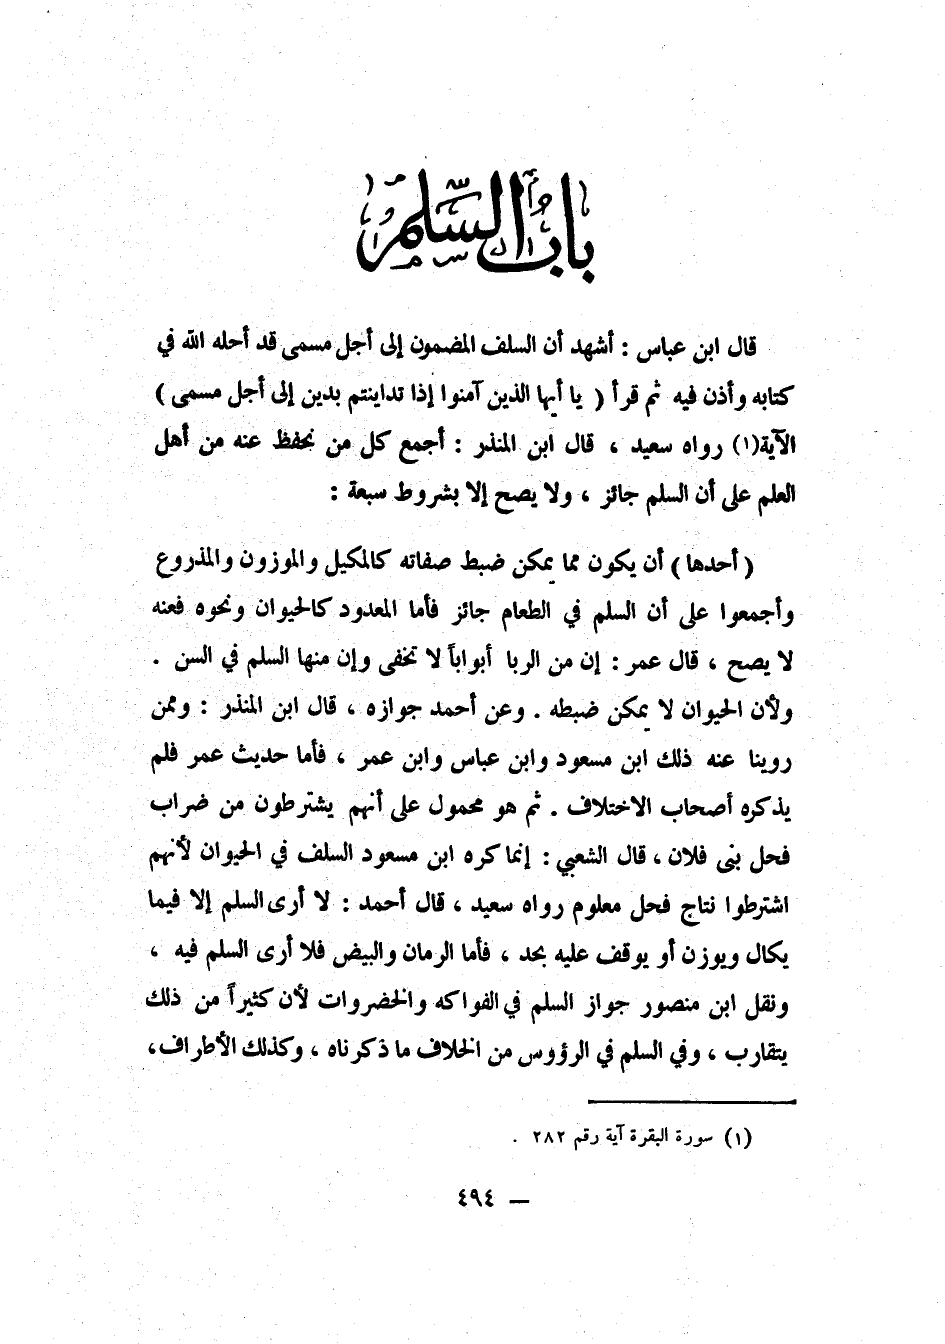 باب السلم
قال ابن عباس : أشهد أن السلف المضمون إلى أجل مسمى قد أحله الله في
كتابه وأذن فيه ثم قرأ ( يا أيها الذين آمنوا إذا تداينتم بدين إلى أجل مسمى )
الآية(١) رواه سعيد ، قال ابن المنذر : أجمع كل من نحفظ عنه من أهل
العلم على أن السلم جائز ، ولا يصح إلا بشروط سبعة :
( أحدها ) أن يكون مما يمكن ضبط صفاته كالمكيل والموزون والمذروع
وأجمعوا على أن السلم في الطعام جائز فأما المعدود كالحيوان ونحوه فعنه
لا يصح ، قال عمر : إن من الربا أبواباً لا تخفى وإن منها السلم في السن .
ولأن الحيوان لا يمكن ضبطه . وعن أحمد جوازه ، قال ابن المنذر : وممن
روينا عنه ذلك ابن مسعود وابن عباس وابن عمر ، فأما حديث عمر فلم
يذكره أصحاب الاختلاف . ثم هو محمول على أنهم يشترطون من ضراب
فحل بنى فلان ، قال الشعبي : إنما كره ابن مسعود السلف في الحيوان لأنهم
اشترطوا نتاج فحل معلوم رواه سعيد ، قال أحمد : لا أرى السلم إلا فيما
يكال ويوزن أو يوقف عليه بحد ، فأما الرمان والبيض فلا أرى السلم فيه ،
ونقل ابن منصور جواز السلم في الفواكه والخضروات لأن كثيراً من ذلك
يتقارب ، وفي السلم في الرؤوس من الخلاف ما ذكرناه ، وكذلك الأطراف،
(١) سورة البقرة آية رقم ٢٨٢ .
— ٤٩٤